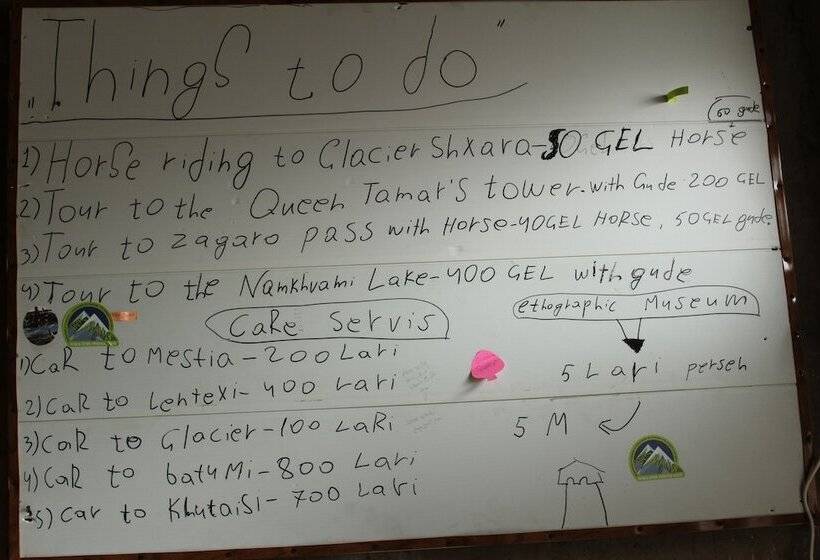 „Things to do"
60 gude
1) Horse riding to Glacier Shxara-50 GEL Horse
2) Tour to the Queen Tamar's tower. with Gude 200 GEL
3) Tour to Zagaro pass with Horse-40GEL HORSE, 50GEL gude.
4) Tour to the Namkhvami Lake-400 GEL with gude
CaRe servis
ethographic Museum
1) CaR to Mestia-200 Lari
5 Lari persen
2) CaR to Lentexi-400 Lari
3) CaR to Glacier-100 LaRi
5 M
4) CaR to batuMi-800 Lari
5) Car to Khutaisi-700 Lari